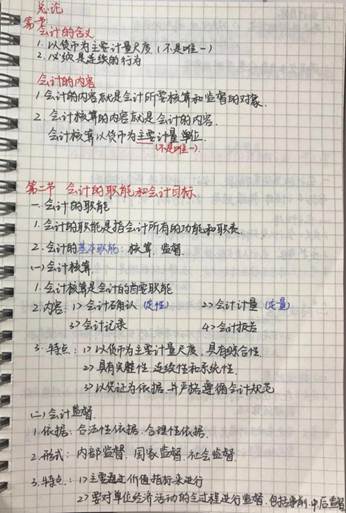 总论
第一章
会计的含义
1. 以货币为主要计量尺度（不是唯一）
2. 必须是连续的行为
会计的内容
1. 会计的内容就是会计所要核算和监督的对象.
2. 会计核算的内容就是会计的内容.
会计核算以货币为主要计量单位.
(不是唯一).
第二节 会计的职能和会计目标
一. 会计的职能
1. 会计的职能是指会计所有的功能和职责.
2. 会计的基本职能: 核算. 监督.
(一) 会计核算
1. 会计核算是会计的首要职能
2. 内容: 1> 会计确认 (定性) 2> 会计计量 (定量)
3> 会计记录 4> 会计报告
3. 特点: 1> 以货币为主要计量尺度. 具有综合性.
2> 具有完整性. 连续性和系统性
3> 以凭证为依据. 并严格遵循会计规范
(二) 会计监督.
1. 依据: 合法性依据. 合理性依据.
2. 形式: 内部监督. 国家监督. 社会监督.
3. 特点: 1> 主要通过价值指标来进行
2> 要对单位经济活动的全过程进行监督. 包括事前. 中后监督